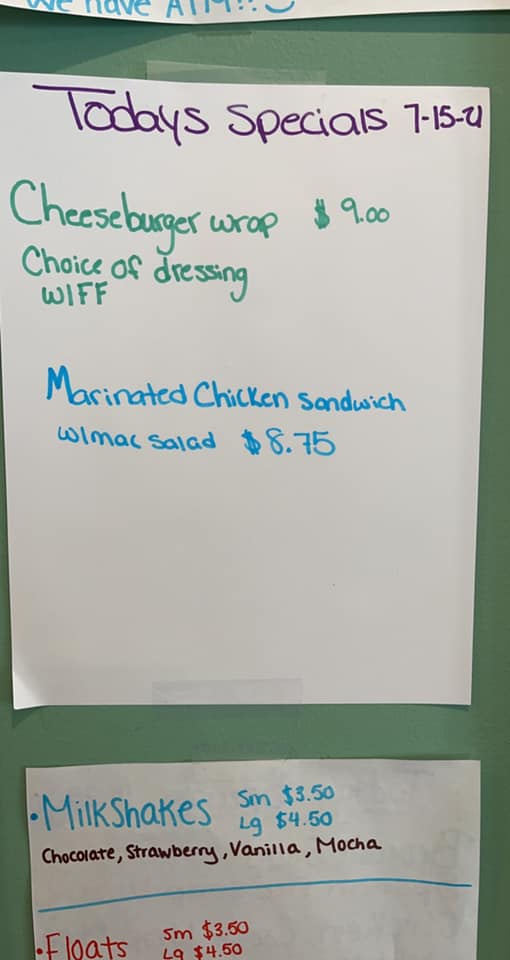 We have ATM!!
Todays Specials 7-15-21
Cheeseburger wrap $9.00
Choice of dressing
W/FF
Marinated Chicken Sandwich
w/mac salad $8.75
•Milkshakes Sm $3.50
Lg $4.50
Chocolate, Strawberry, Vanilla, Mocha
•Floats Sm $3.50
Lg $4.50